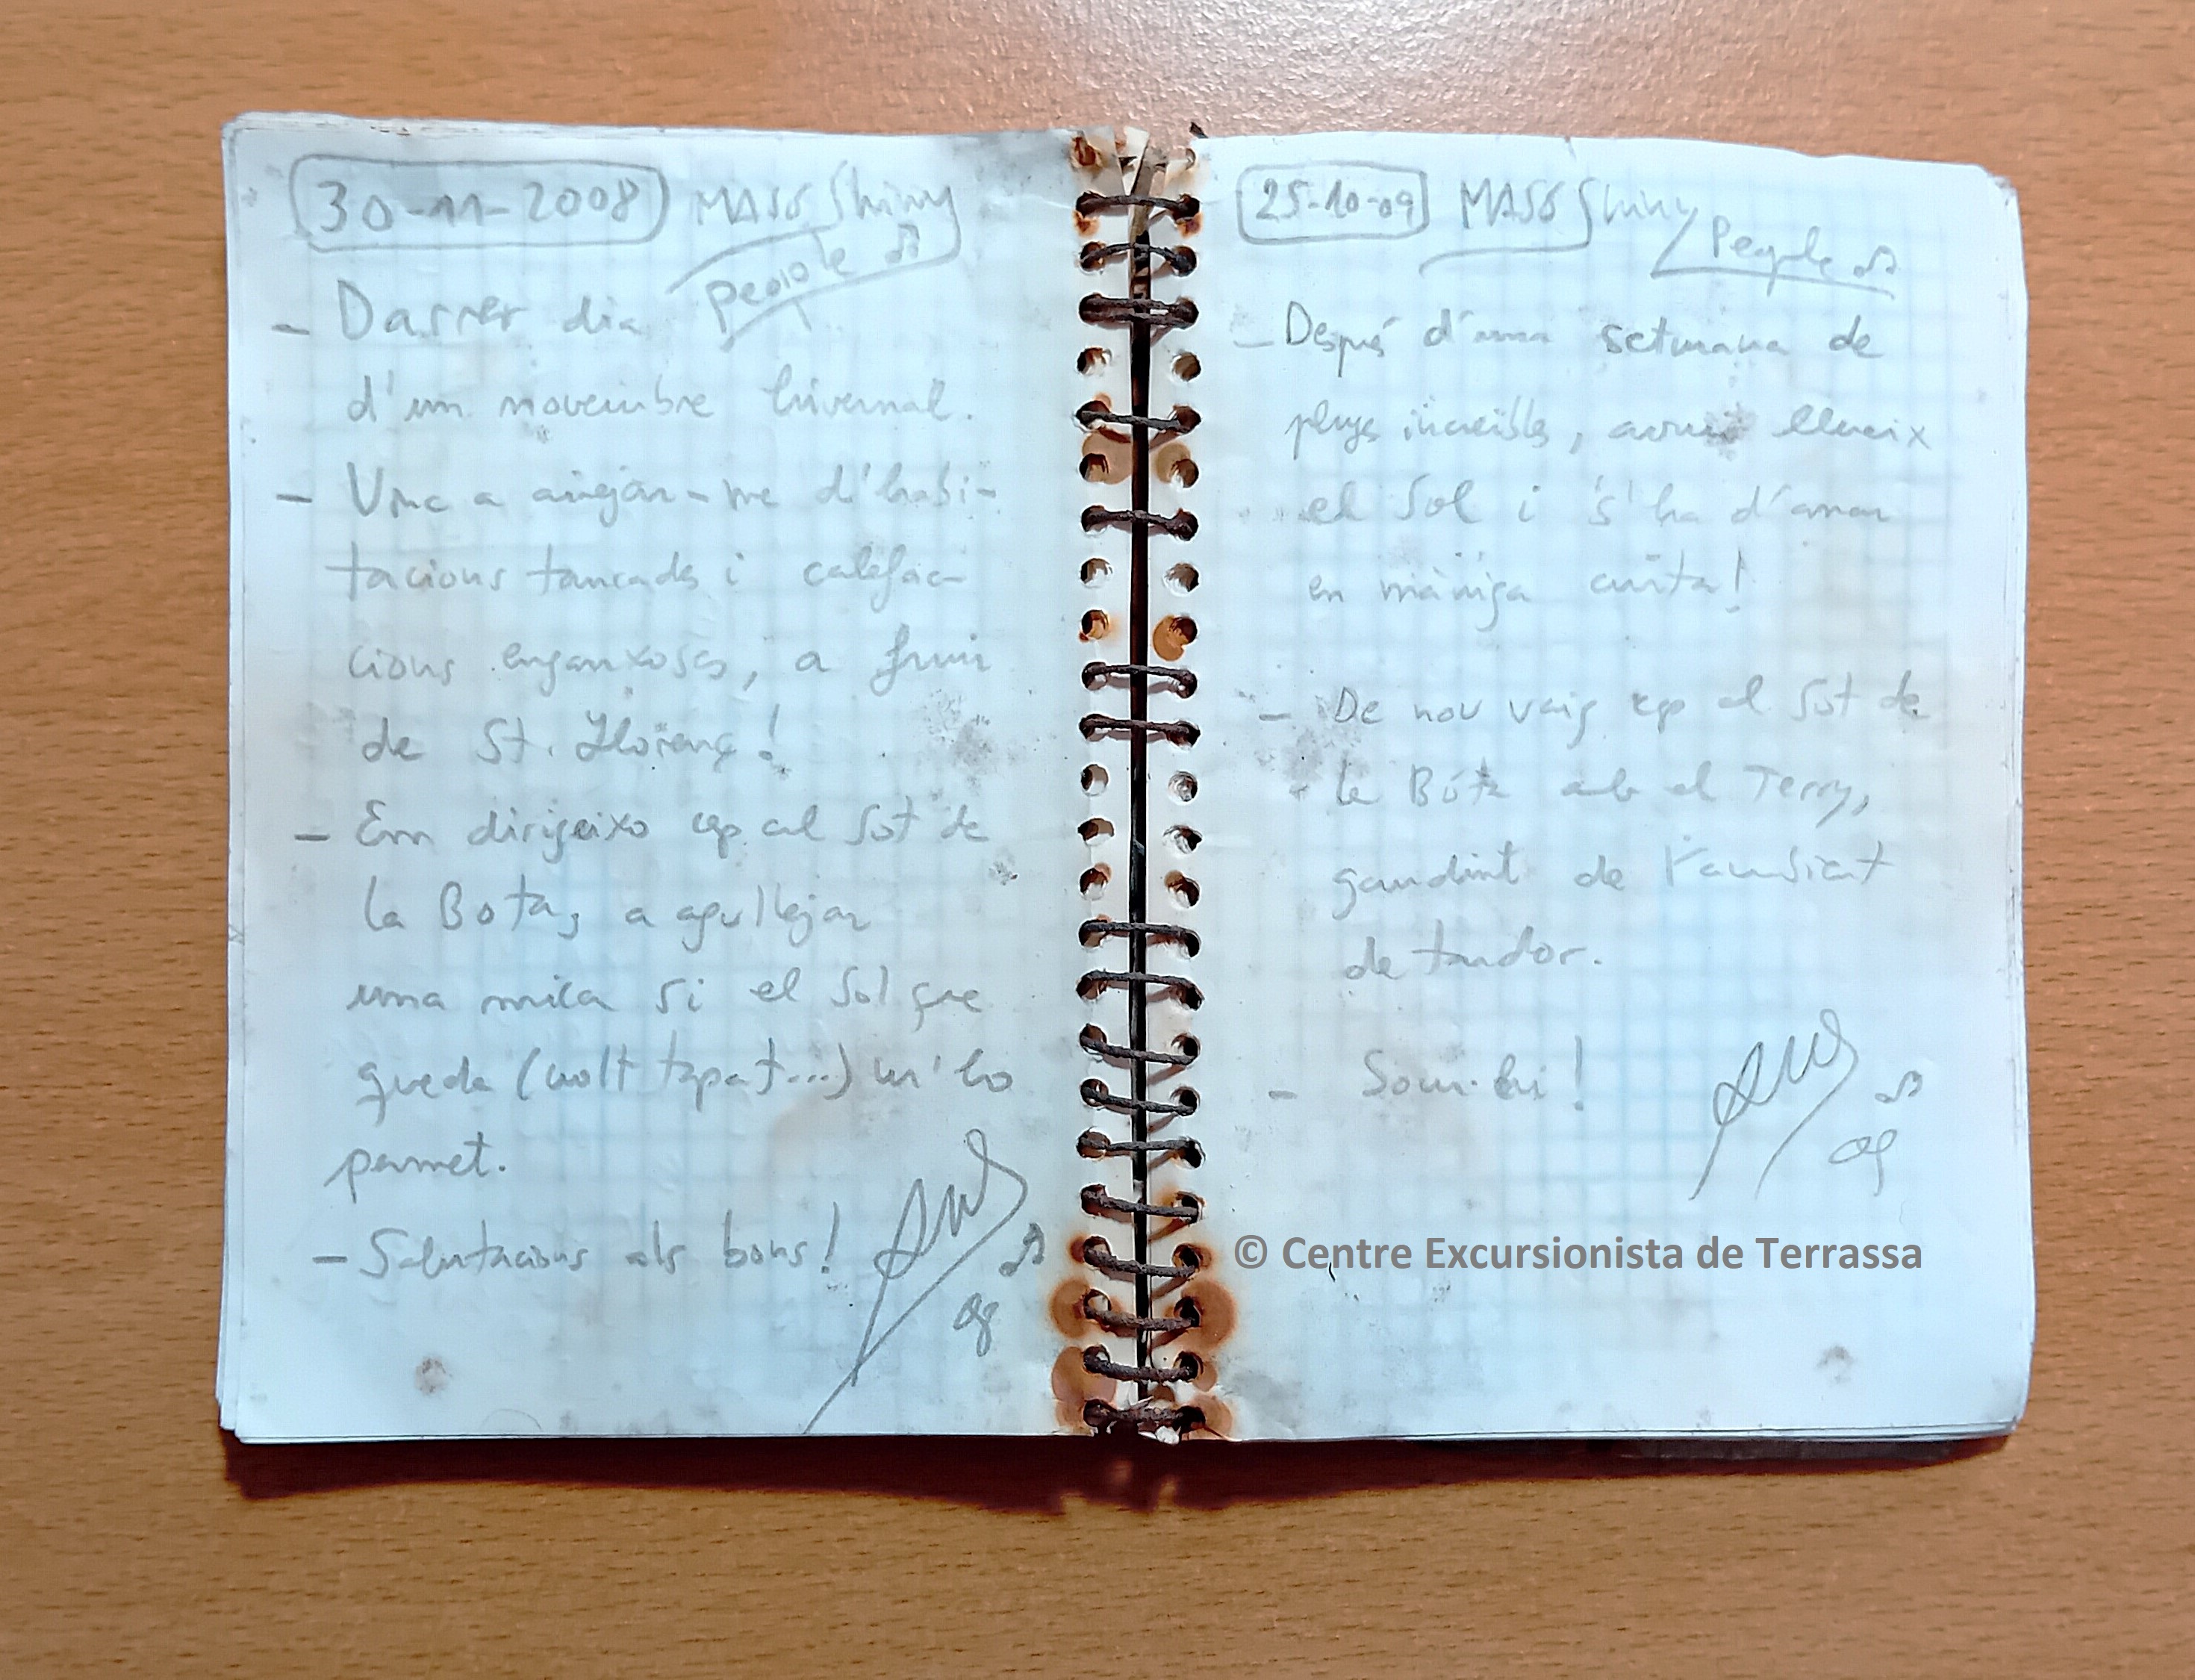 30-11-2008 MASS Shiny
People
- Darrer dia
d'un novembre hivernal.
- Vinc a airejar-me d'habi-
tacions tancades i calefac-
cions enganxoses, a fruir
de St. Llorenç!
- Em dirigeixo cap al Sot de
la Bota, a agullejar
una mica si el Sol que
queda (molt tapat...) m'ho
permet.
- Salutacions als bons!
08
25-10-09 MASS Shiny
People
- Després d'una setmana de
pluges increïbles, avui llueix
el Sol i s'ha d'anar
en màniga curta!
- De nou vaig cap al Sot de
la Bóta amb el Terry,
gaudint de l'ambient
de tardor.
- Som-hi!
09
© Centre Excursionista de Terrassa